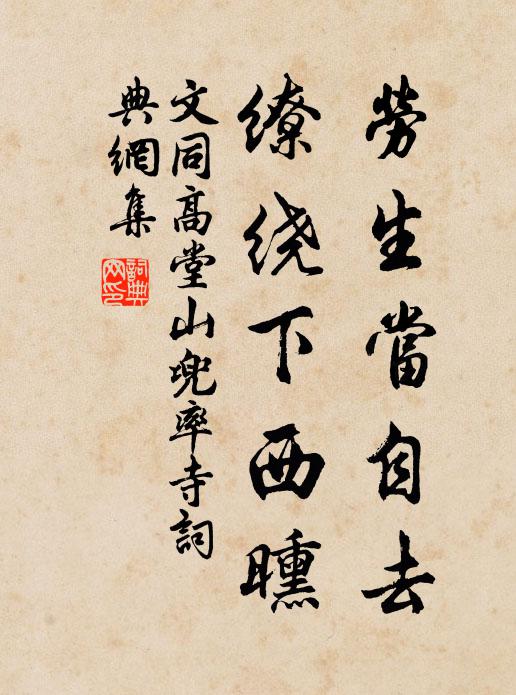 勞生當自去
繚绕下西曛
文同高堂山兜率寺詞
典網集
詞典
网印